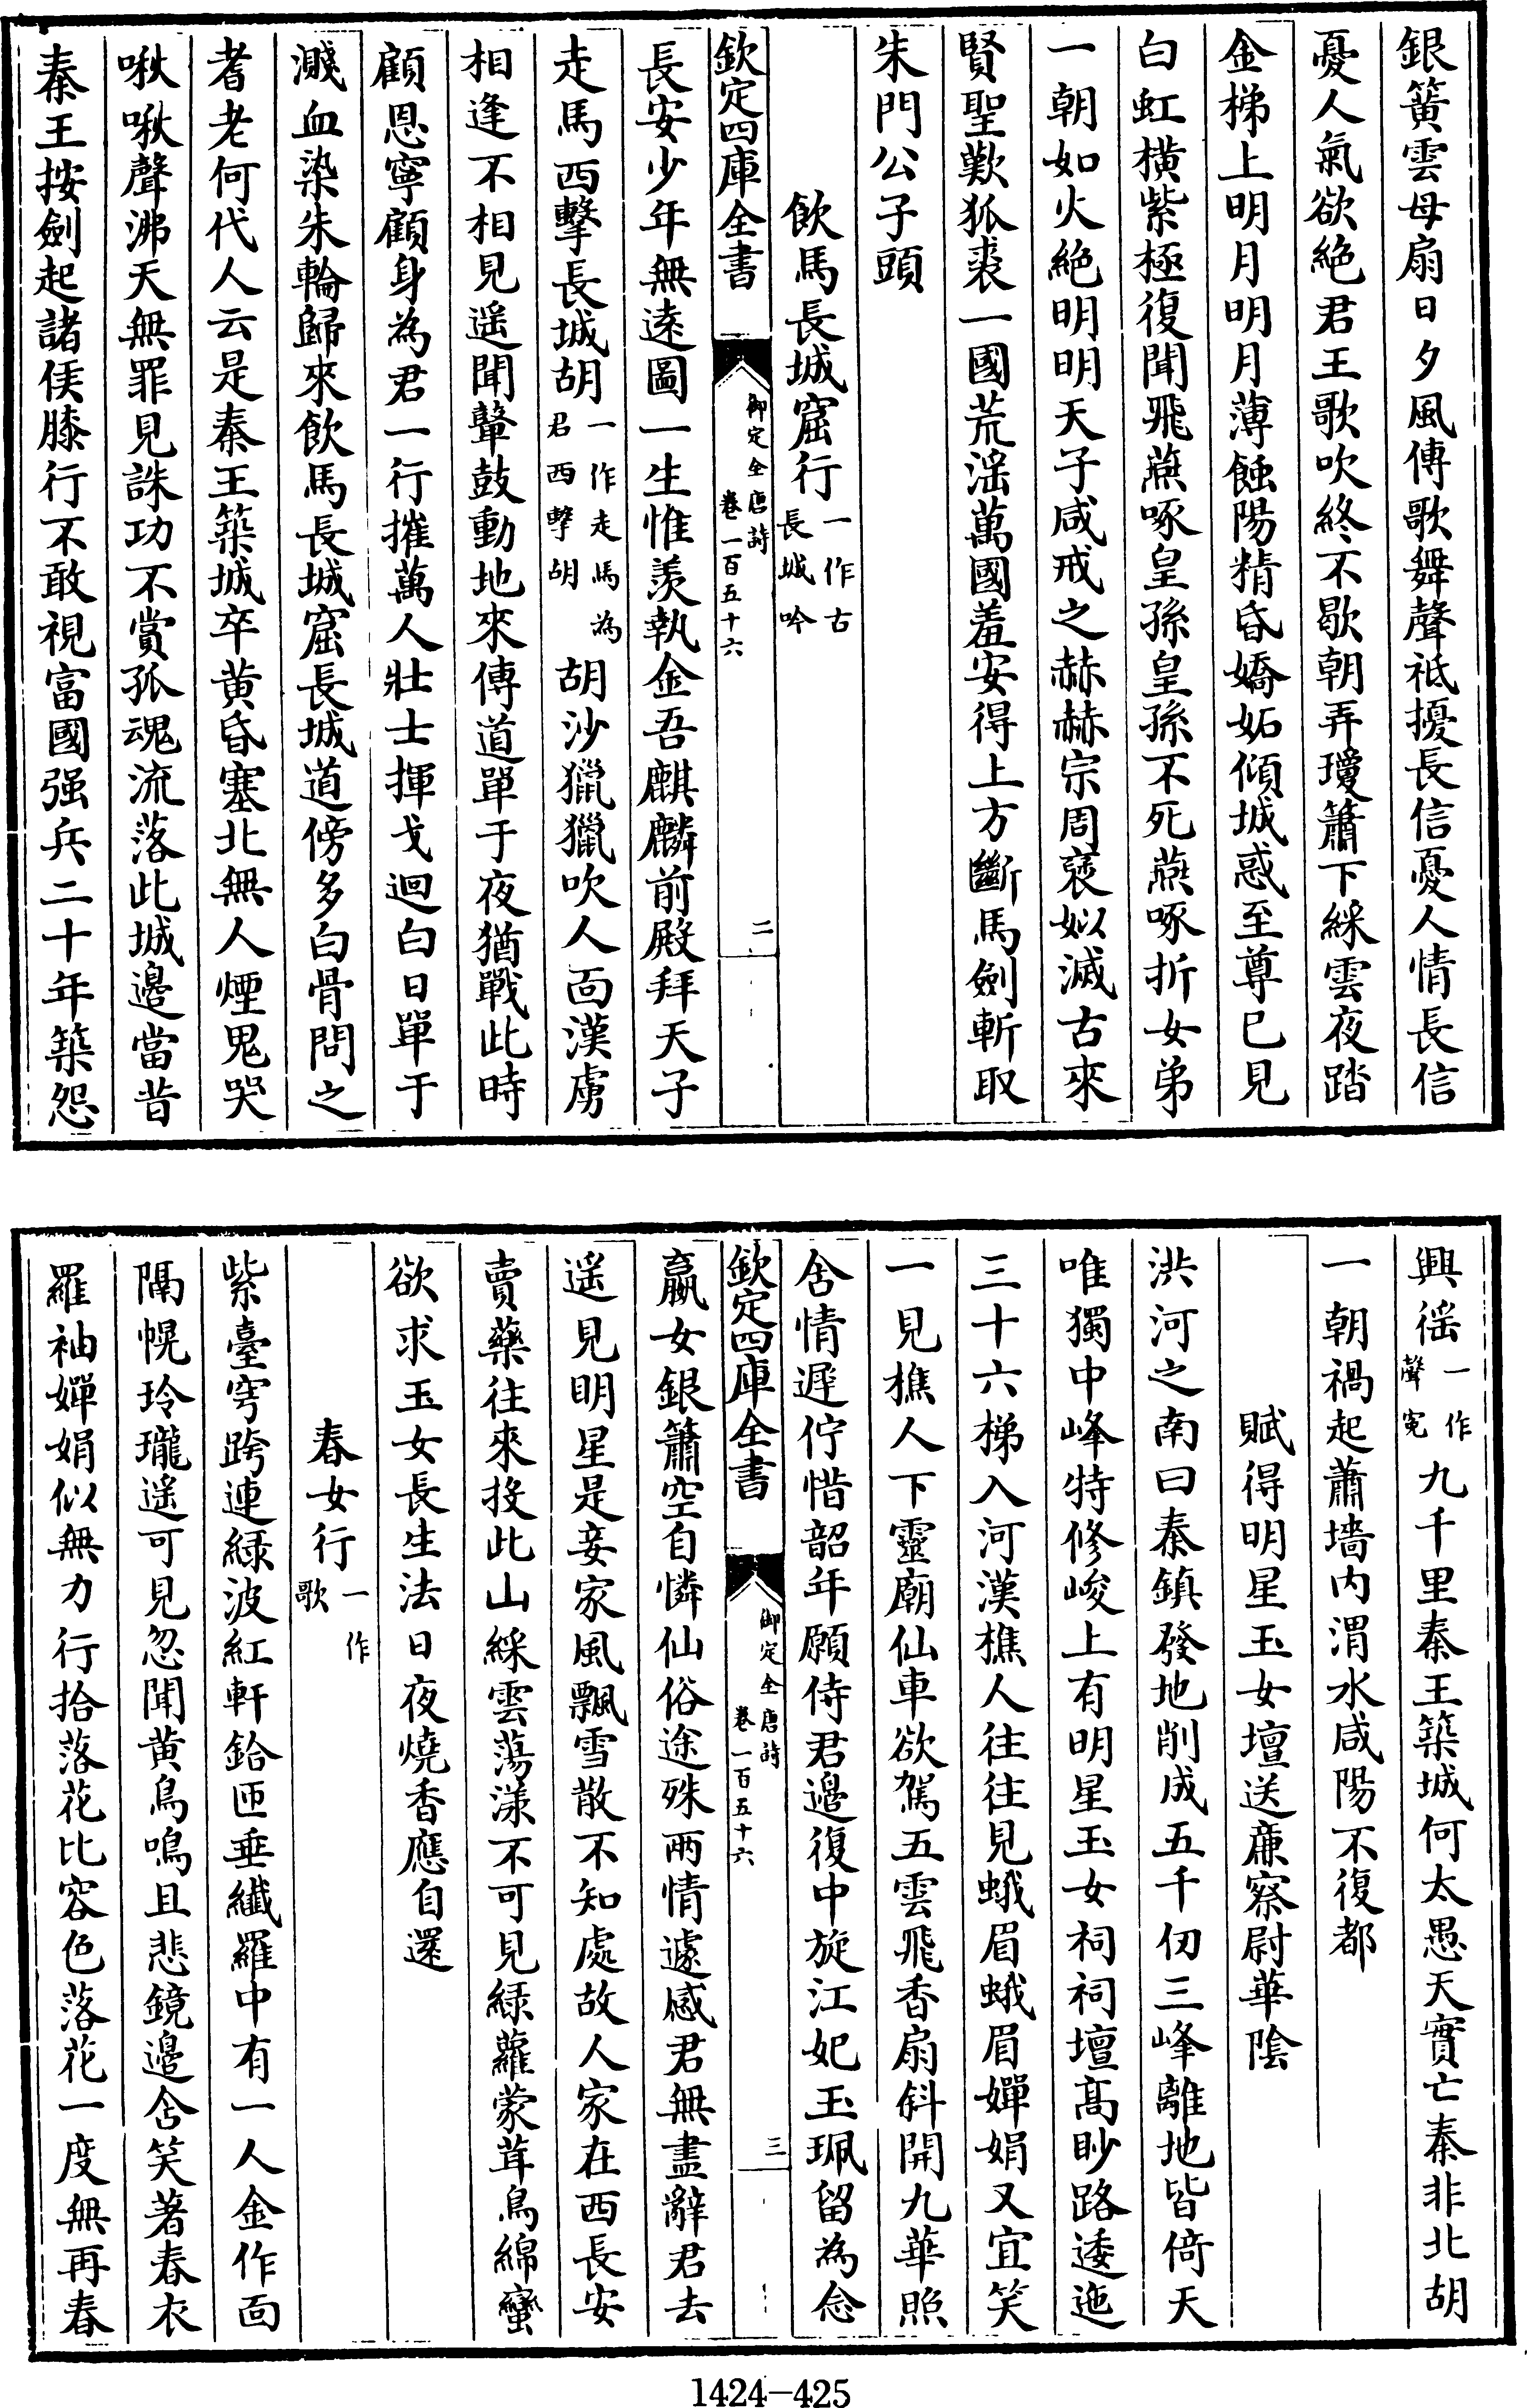 銀簧雲母扇日夕風傳歌舞聲祗擾長信憂人情長信
憂人氣欲絶君王歌吹終不歇朝弄瓊簫下綵雲夜踏
金梯上明月明月薄蝕陽精昏嬌妬傾城惑至尊已見
白虹橫紫極復聞飛燕啄皇孫皇孫不死燕啄折女弟
一朝如火絶明明天子咸戒之赫赫宗周襃姒滅古來
賢聖歎狐裘一國荒淫萬國羞安得上方斷馬劍斬取
朱門公子頭
飲馬長城窟行一作古長城吟
欽定四庫全書
御定全唐詩
卷一百五十六
二
長安少年無遠圖一生惟羨執金吾麒麟前殿拜天子
走馬西擊長城胡一作走馬為君西擊胡胡沙獵獵吹人面漢虜
相逢不相見遥聞鼙鼓動地來傳道單于夜猶戰此時
顧恩寧顧身為君一行摧萬人壯士揮戈迴白日單于
濺血染朱輪歸來飲馬長城窟長城道傍多白骨問之
耆老何代人云是秦王築城卒黄昏塞北無人煙鬼哭
啾啾聲沸天無罪見誅功不賞孤魂流落此城邉當昔
秦王按劍起諸侯膝行不敢視富國强兵二十年築怨
興徭一作聲寃九千里秦王築城何太愚天實亡秦非北胡
一朝禍起蕭墻内渭水咸陽不復都
賦得明星玉女壇送亷察尉華陰
洪河之南曰秦鎮發地削成五千仞三峰離地皆倚天
唯獨中峰特修峻上有明星玉女祠祠壇髙眇路逶迤
三十六梯入河漢樵人往往見蛾眉蛾眉嬋娟又宜笑
一見樵人下靈廟仙車欲駕五雲飛香扇斜開九華照
含情遲佇惜韶年願侍君邉復中旋江妃玉珮留為念
欽定四庫全書
御定全唐詩
卷一百五十六
三
嬴女銀簫空自憐仙俗途殊兩情遽感君無盡辭君去
遥見明星是妾家風飄雪散不知處故人家在西長安
賣藥往來投此山綵雲蕩漾不可見緑蘿蒙茸鳥綿蠻
欲求玉女長生法日夜燒香應自還
春女行一作歌
紫臺穹跨連緑波紅軒鉿匝垂纎羅中有一人金作面
隔幌玲瓏遥可見忽聞黄鳥鳴且悲鏡邉含笑著春衣
羅袖嬋娟似無力行拾落花比容色落花一度無再春
1424—425